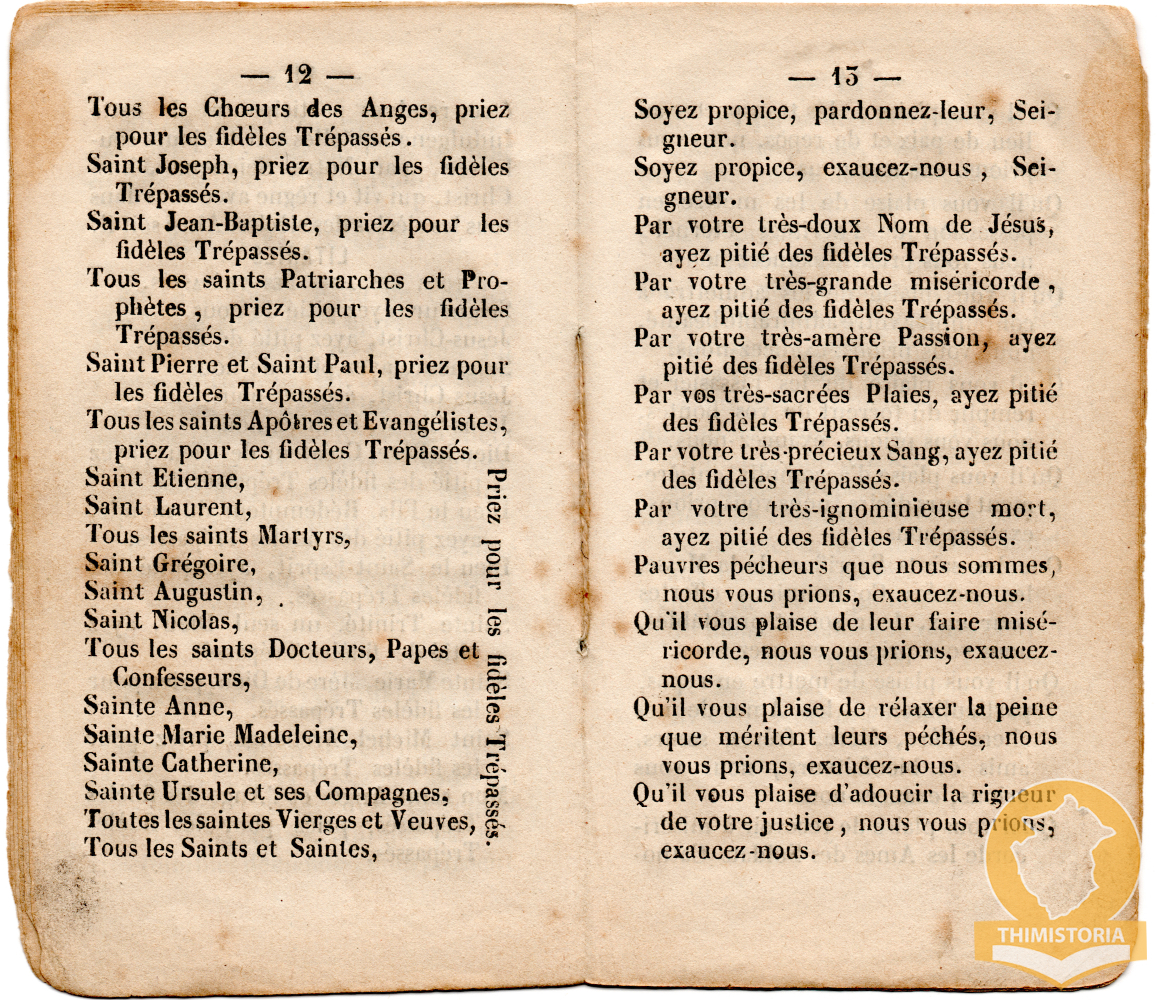 — 12 —
Tous les Chœurs des Anges, priez
pour les fidèles Trépassés.
Saint Joseph, priez pour les fidèles
Trépassés.
Saint Jean-Baptiste, priez pour les
fidèles Trépassés.
Tous les saints Patriarches et Pro-
phètes, priez pour les fidèles
Trépassés.
Saint Pierre et Saint Paul, priez pour
les fidèles Trépassés.
Tous les saints Apôtres et Evangélistes,
priez pour les fidèles Trépassés.
Saint Etienne,
Saint Laurent,
Tous les saints Martyrs,
Saint Grégoire,
Saint Augustin,
Saint Nicolas,
Tous les saints Docteurs, Papes et
Confesseurs,
Sainte Anne,
Sainte Marie Madeleine,
Sainte Catherine,
Sainte Ursule et ses Compagnes,
Toutes les saintes Vierges et Veuves,
Tous les Saints et Saintes,
Priez pour les fidèles Trépassés.
— 13 —
Soyez propice, pardonnez-leur, Sei-
gneur.
Soyez propice, exaucez-nous, Sei-
gneur.
Par votre très-doux Nom de Jésus,
ayez pitié des fidèles Trépassés.
Par votre très-grande miséricorde,
ayez pitié des fidèles Trépassés.
Par votre très-amère Passion, ayez
pitié des fidèles Trépassés.
Par vos très-sacrées Plaies, ayez pitié
des fidèles Trépassés.
Par votre très-précieux Sang, ayez pitié
des fidèles Trépassés.
Par votre très-ignominieuse mort,
ayez pitié des fidèles Trépassés.
Pauvres pécheurs que nous sommes,
nous vous prions, exaucez-nous.
Qu'il vous plaise de leur faire misé-
ricorde, nous vous prions, exaucez-
nous.
Qu'il vous plaise de rélaxer la peine
que méritent leurs péchés, nous
vous prions, exaucez-nous.
Qu'il vous plaise d'adoucir la rigueur
de votre justice, nous vous prions,
exaucez-nous.
THIMISTORIA